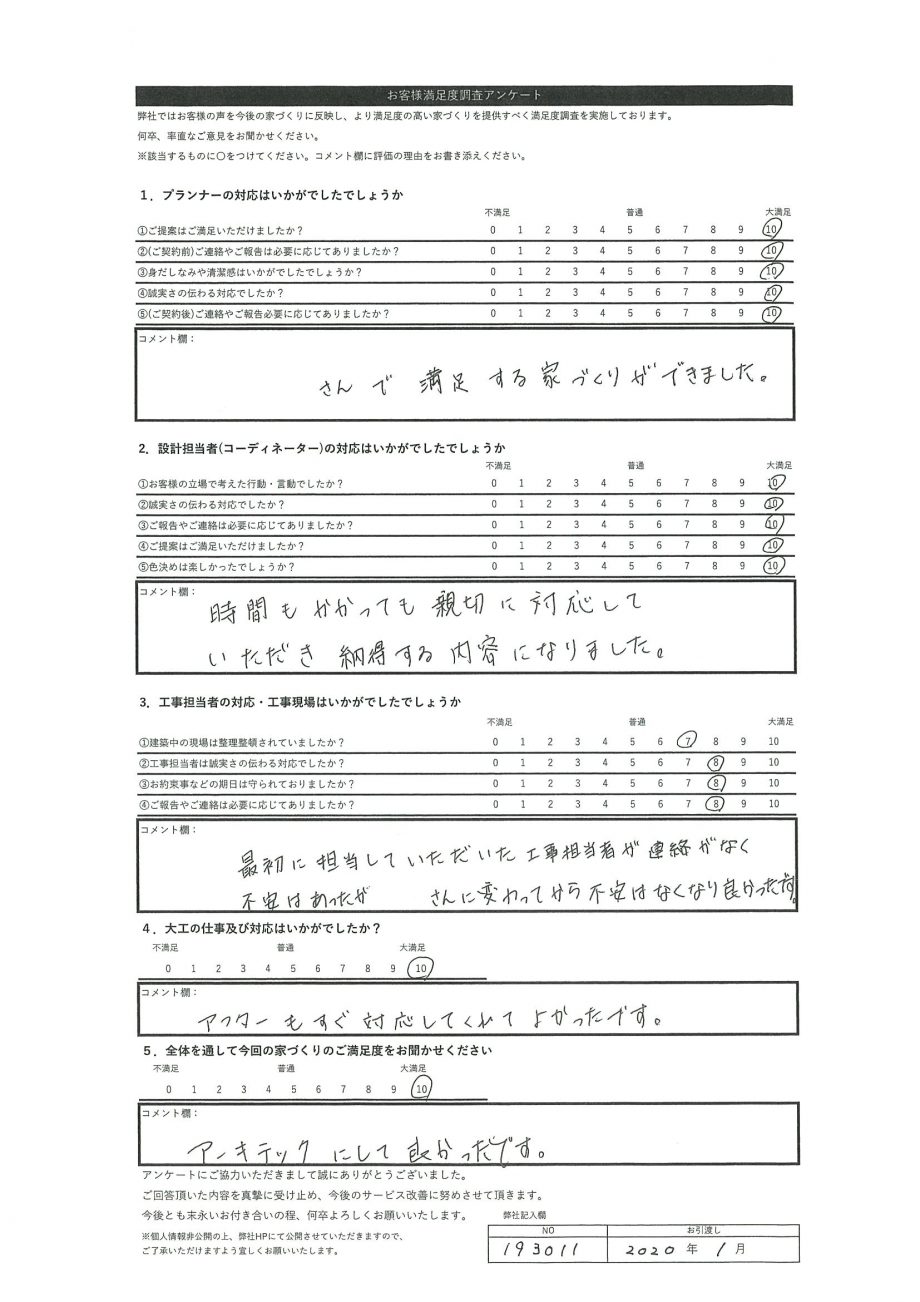 お客様満足度調査アンケート
弊社ではお客様の声を今後の家づくりに反映し、より満足度の高い家づくりを提供すべく満足度調査を実施しております。
何卒、率直なご意見をお聞かせください。
※該当するものに〇をつけてください。コメント欄に評価の理由をお書き添えください。
1．プランナーの対応はいかがでしたでしょうか
不満足 普通 大満足
①ご提案はご満足いただけましたか？ 0 1 2 3 4 5 6 7 8 9 10
②(ご契約前)ご連絡やご報告は必要に応じてありましたか？ 0 1 2 3 4 5 6 7 8 9 10
③身だしなみや清潔感はいかがでしたでしょうか？ 0 1 2 3 4 5 6 7 8 9 10
④誠実さの伝わる対応でしたか？ 0 1 2 3 4 5 6 7 8 9 10
⑤(ご契約後)ご連絡やご報告必要に応じてありましたか？ 0 1 2 3 4 5 6 7 8 9 10
コメント欄：
さんで満足する家づくりができました。
2．設計担当者(コーディネーター)の対応はいかがでしたでしょうか
不満足 普通 大満足
①お客様の立場で考えた行動・言動でしたか？ 0 1 2 3 4 5 6 7 8 9 10
②誠実さの伝わる対応でしたか？ 0 1 2 3 4 5 6 7 8 9 10
③ご報告やご連絡は必要に応じてありましたか？ 0 1 2 3 4 5 6 7 8 9 10
④ご提案はご満足いただけましたか？ 0 1 2 3 4 5 6 7 8 9 10
⑤色決めは楽しかったでしょうか？ 0 1 2 3 4 5 6 7 8 9 10
コメント欄：
時間もかかっても親切に対応して
いただき納得する内容になりました。
3．工事担当者の対応・工事現場はいかがでしたでしょうか
不満足 普通 大満足
①建築中の現場は整理整頓されていましたか？ 0 1 2 3 4 5 6 7 8 9 10
②工事担当者は誠実さの伝わる対応でしたか？ 0 1 2 3 4 5 6 7 8 9 10
③お約束事などの期日は守られておりましたか？ 0 1 2 3 4 5 6 7 8 9 10
④ご報告やご連絡は必要に応じてありましたか？ 0 1 2 3 4 5 6 7 8 9 10
コメント欄：
最初に担当していただいた工事担当者が連絡がなく
不安はあったが さんに変わってから不安はなくなり良かったです。
4．大工の仕事及び対応はいかがでしたか？
不満足 普通 大満足
0 1 2 3 4 5 6 7 8 9 10
コメント欄：
アフターもすぐ対応してくれてよかったです。
5．全体を通して今回の家づくりのご満足度をお聞かせください
不満足 普通 大満足
0 1 2 3 4 5 6 7 8 9 10
コメント欄：
アーキテックにして良かったです。
アンケートにご協力いただきまして誠にありがとうございました。
ご回答頂いた内容を真摯に受け止め、今後のサービス改善に努めさせて頂きます。
今後とも末永いお付き合いの程、何卒よろしくお願いいたします。
※個人情報非公開の上、弊社HPにて公開させていただきますので、
ご了承いただけますよう宜しくお願いいたします。
弊社記入欄
NO お引渡し
193011 2020 年 1 月